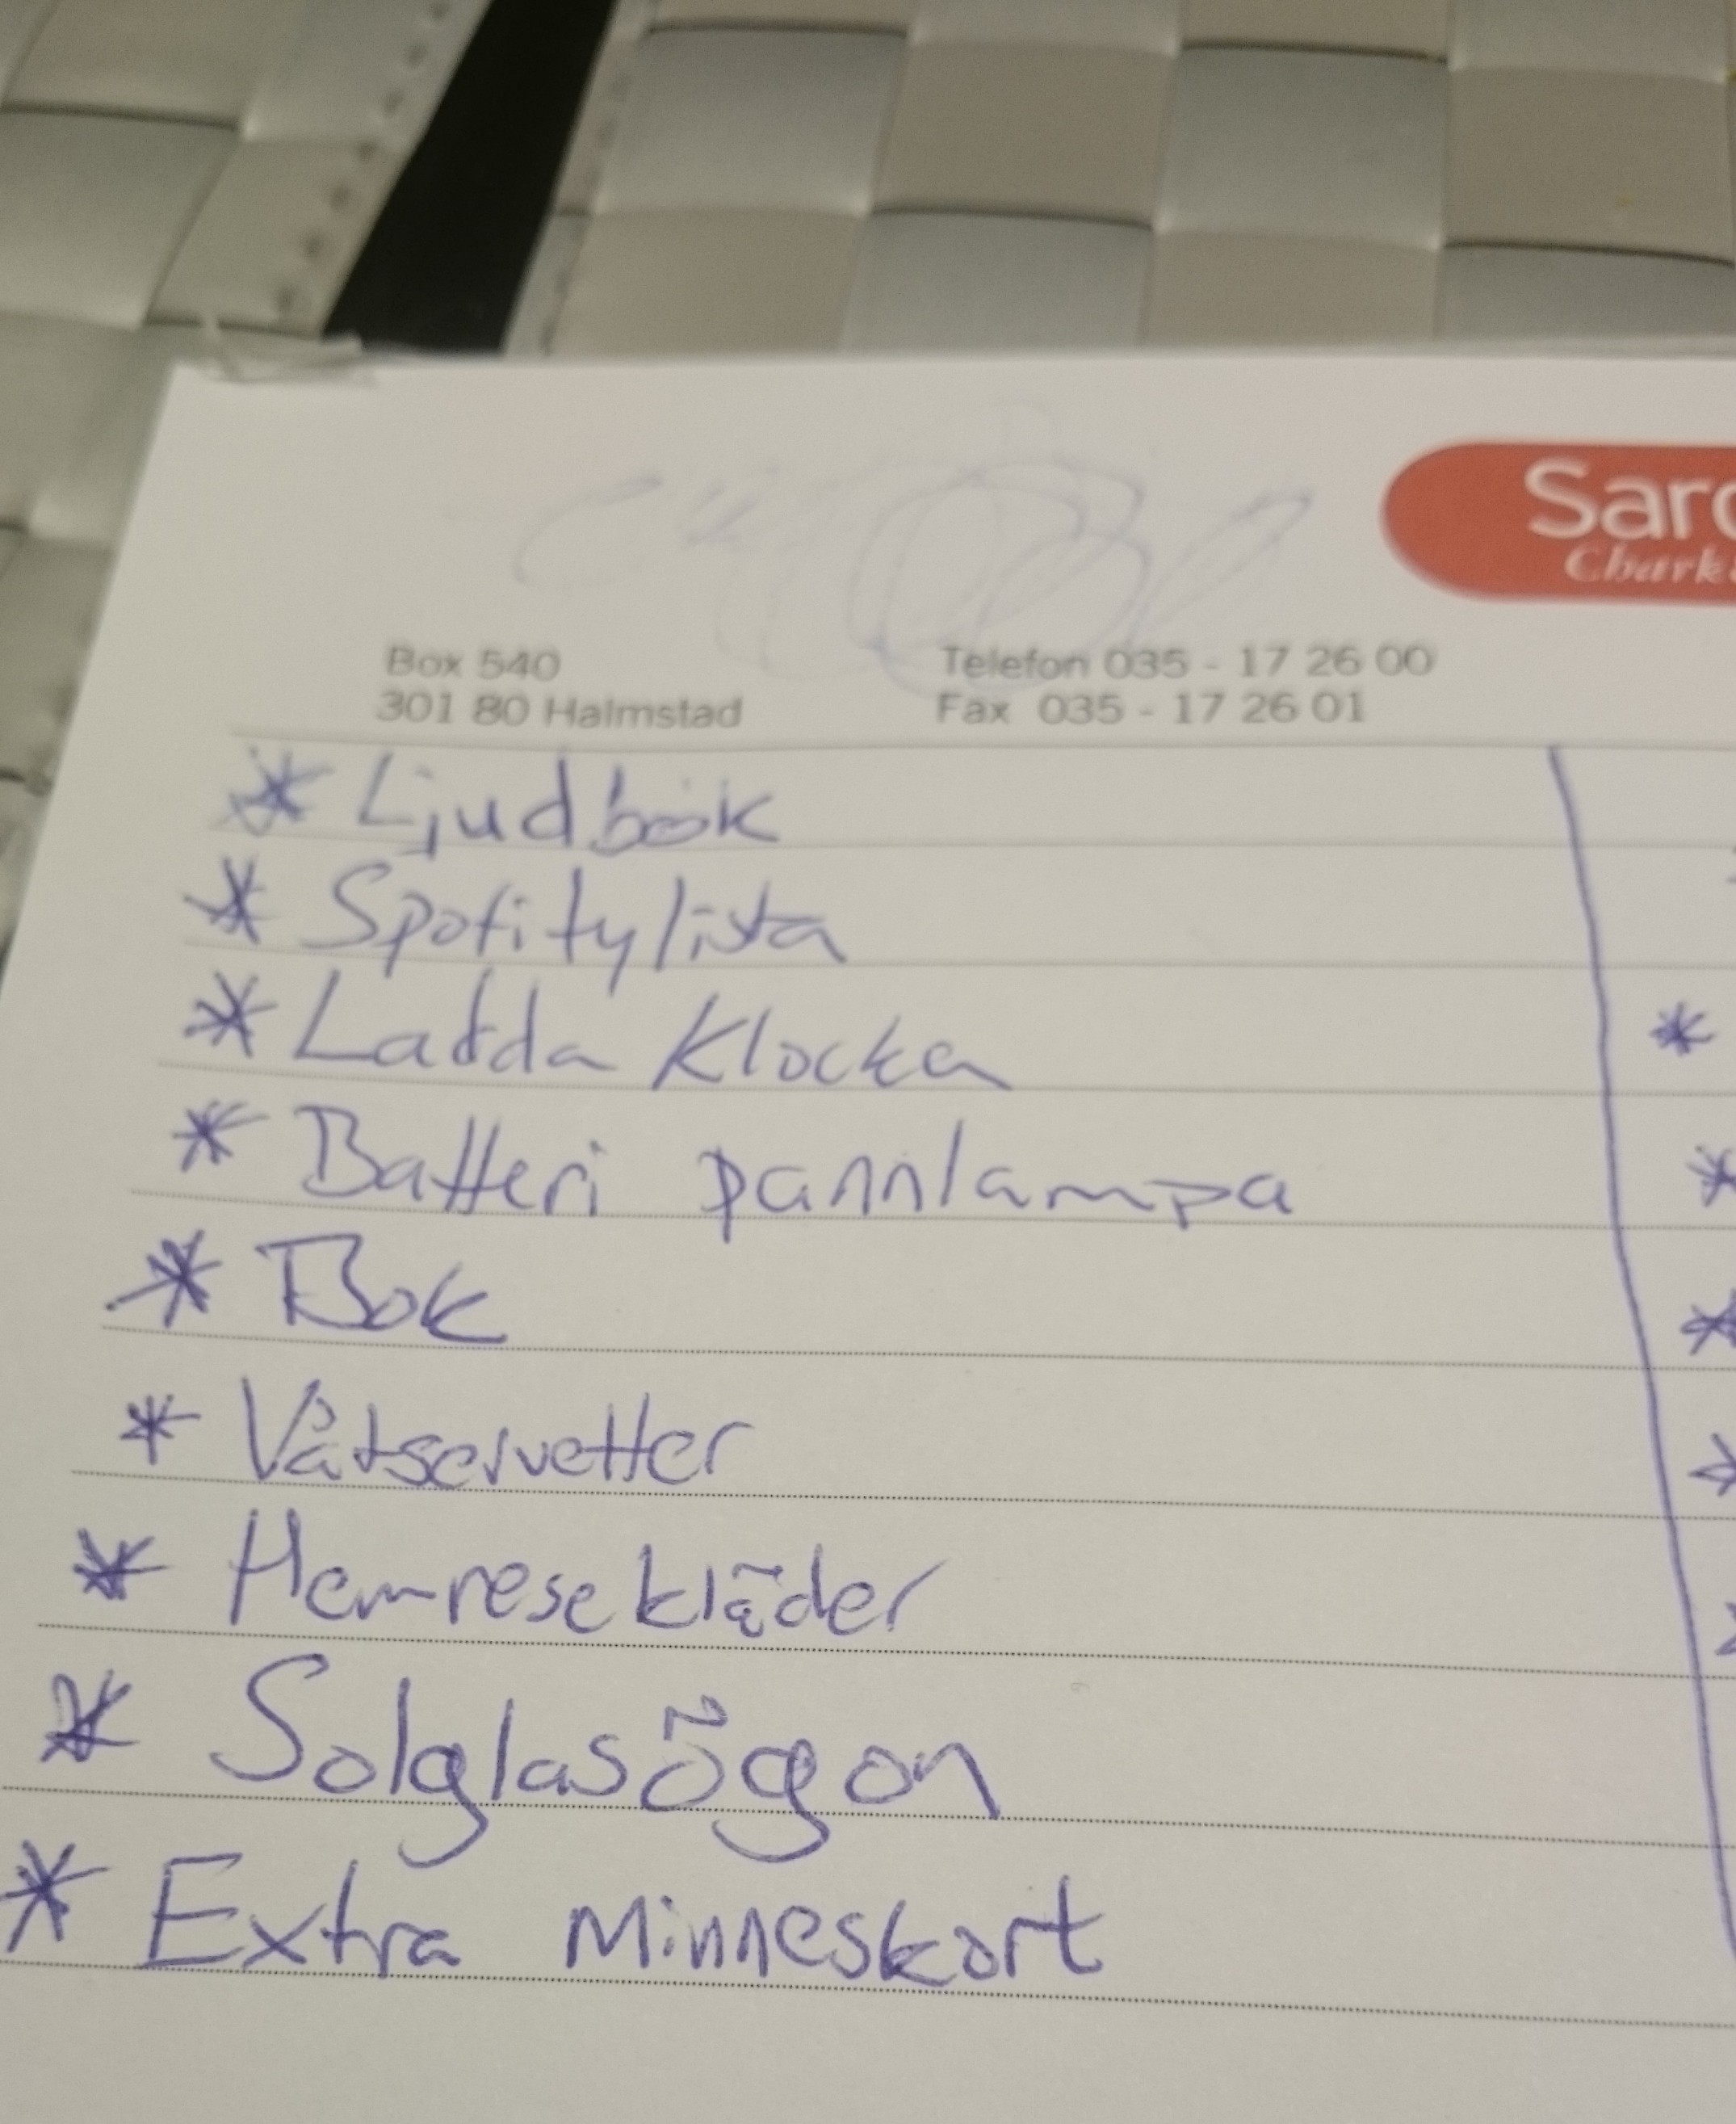 Box 540
301 80 Halmstad
Telefon 035 - 17 26 00
Fax 035 - 17 26 01
* Ljudbok
* Spotifylista
* Ladda klocka
* Batteri pannlampa
* Bok
* Våtservetter
* Hemresekläder
* Solglasögon
* Extra Minneskort